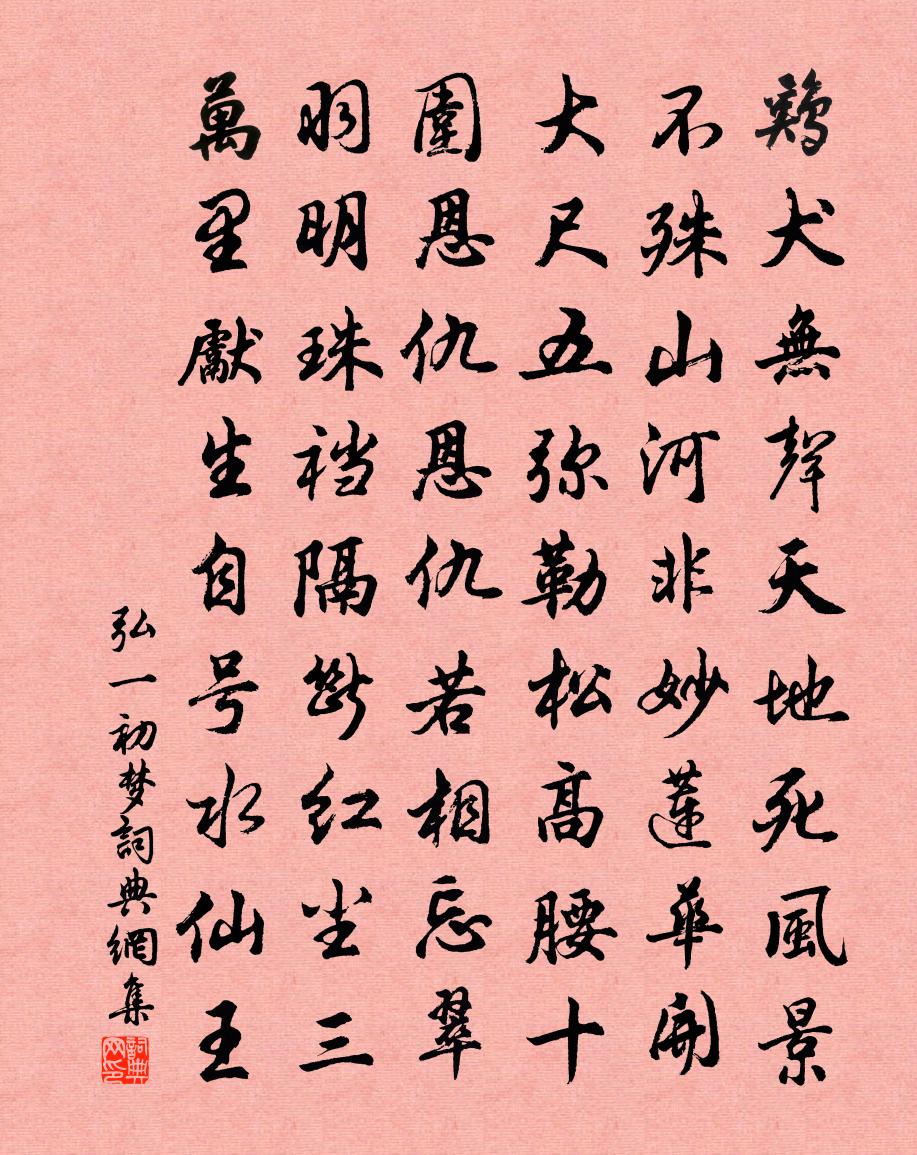 鷄犬無聲天地死風景
不殊山河非妙蓮華開
大尺五弥勒松高腰十
圍恩仇恩仇若相忘翠
羽明珠裆隔斷紅尘三
萬里獻生自号水仙王
弘一初梦詞典網集
詞典网印